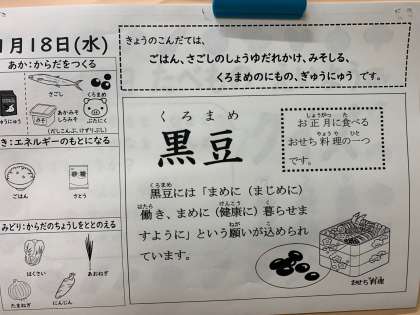 1月18日(水)
あか:からだをつくる
さごし
くろまめ
ぎゅうにゅう
みそ
あかみそ
しろみそ
ぶたにく
(だしこんぶ、けずりぶし)
き:エネルギーのもとになる
ごはん
さとう
みどり:からだのちょうしをととのえる
はくさい
あおねぎ
たまねぎ
にんじん
きょうのこんだては、
ごはん、さごしのしょうゆだれかけ、みそしる、
くろまめのにもの、ぎゅうにゅう です。
くろまめ
黒豆
しょうがつ た
お正月に食べる
りょうり ひと
おせち料理の一つ
です。
くろまめ
黒豆には「まめに(まじめに)
はたら けんこう く
働き、まめに(健康に)暮らせま
ねが こ
すように」という願いが込められ
ています。
おせち料理